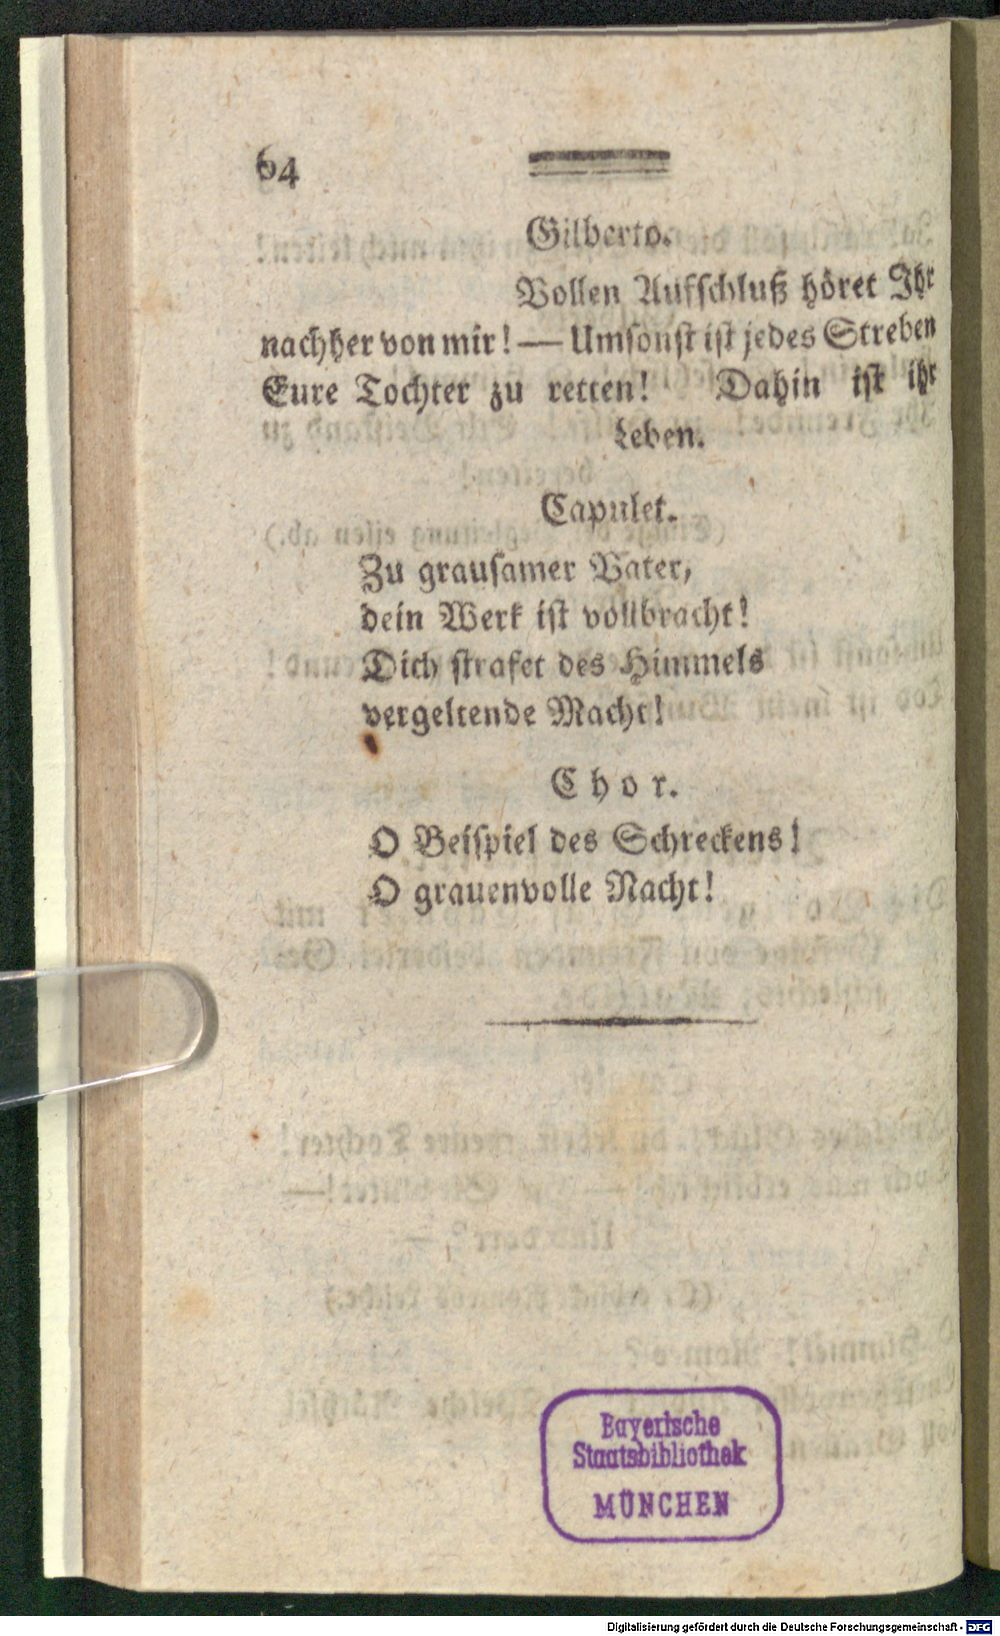 64
Gilberto.
Vollen Aufschluß höret Ihr
nachher von mir! — Umsonst ist jedes Streben
Eure Tochter zu retten! Dahin ist ihr
Leben.
Capulet.
Zu grausamer Vater,
dein Werk ist vollbracht!
Dich strafet des Himmels
vergeltende Macht!
Chor.
O Beispiel des Schreckens!
O grauenvolle Nacht!
Bayerische
Staatsbibliothek
MÜNCHEN
Digitalisierung gefördert durch die Deutsche Forschungsgemeinschaft - DFG